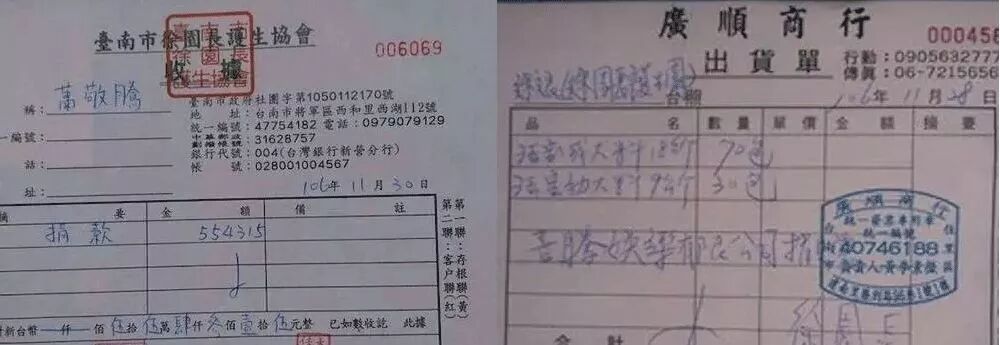 臺南市徐園長護生協會
006069
收據
臺南市徐園長護生協會
稱：蕭敬騰
臺南市政府社團字第1050112170號
地 址：台南市將軍區西和里西湖112號
統一編號：47754182 電話：0979079129
一編號：
31628757
銀行代號：004(台灣銀行新營分行)
話：
帳 號：028001004567
址：
106年 11月 30日
摘 要 金 額 備 註
捐款 554315
第一聯：存根聯(黃)
第二聯：客戶聯(紅)
新台幣 仟 佰伍拾伍萬肆仟參佰壹拾伍元整 已如數收訖 此據
廣順商行
000456
出貨單
行動：0905632777
傳真：06-7215656
台照
106年 11月 28日
品 名 數量 單價 金額 摘要
70包
30包
喜騰娛樂有限公司捐
廣順商行
統一發票專用章
統一編號
40746188
合計